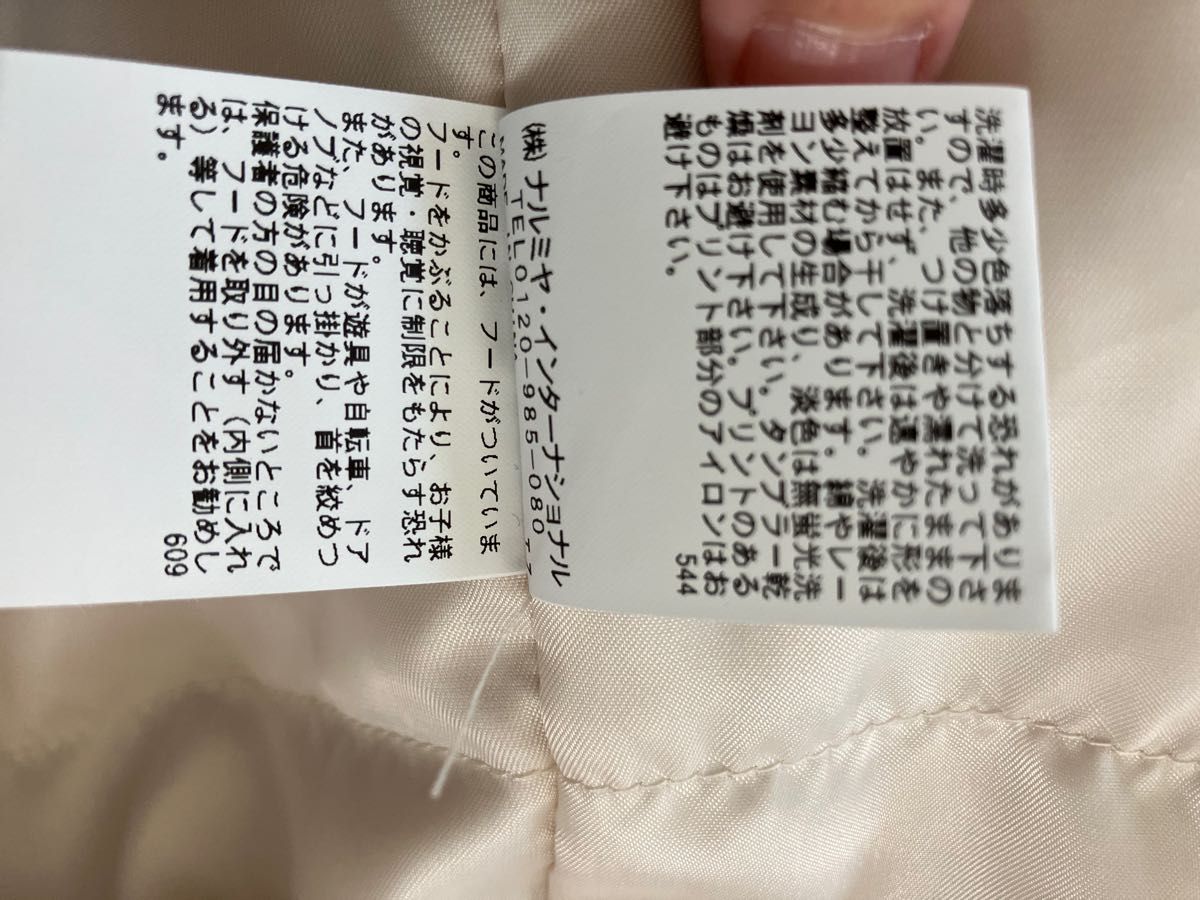 洗濯時多少色落ちする恐れがありま
すので、他の物と分けて洗って下さ
い。また、つけ置きや濡れたままの
放置はせず、洗濯後は速やかに形を
整えてから干して下さい。洗濯後は
多少縮む場合があります。綿やレー
ヨン素材の生成り、淡色は無蛍光洗
剤を使用して下さい。タンブラー乾
燥はお避け下さい。プリントのある
ものはプリント部分のアイロンはお
避け下さい。
544
(株)ナルミヤ・インターナショナル
TEL0120-985-080
この商品には、フードがついていま
す。
フードをかぶることにより、お子様
の視覚・聴覚に制限をもたらす恐れ
があります。
また、フードが遊具や自転車、ドア
ノブなどに引っ掛かり、首を絞めつ
ける危険があります。
保護者の方の目の届かないところで
は、フードを取り外す(内側に入れ
る)等して着用することをお勧めし
ます。
609